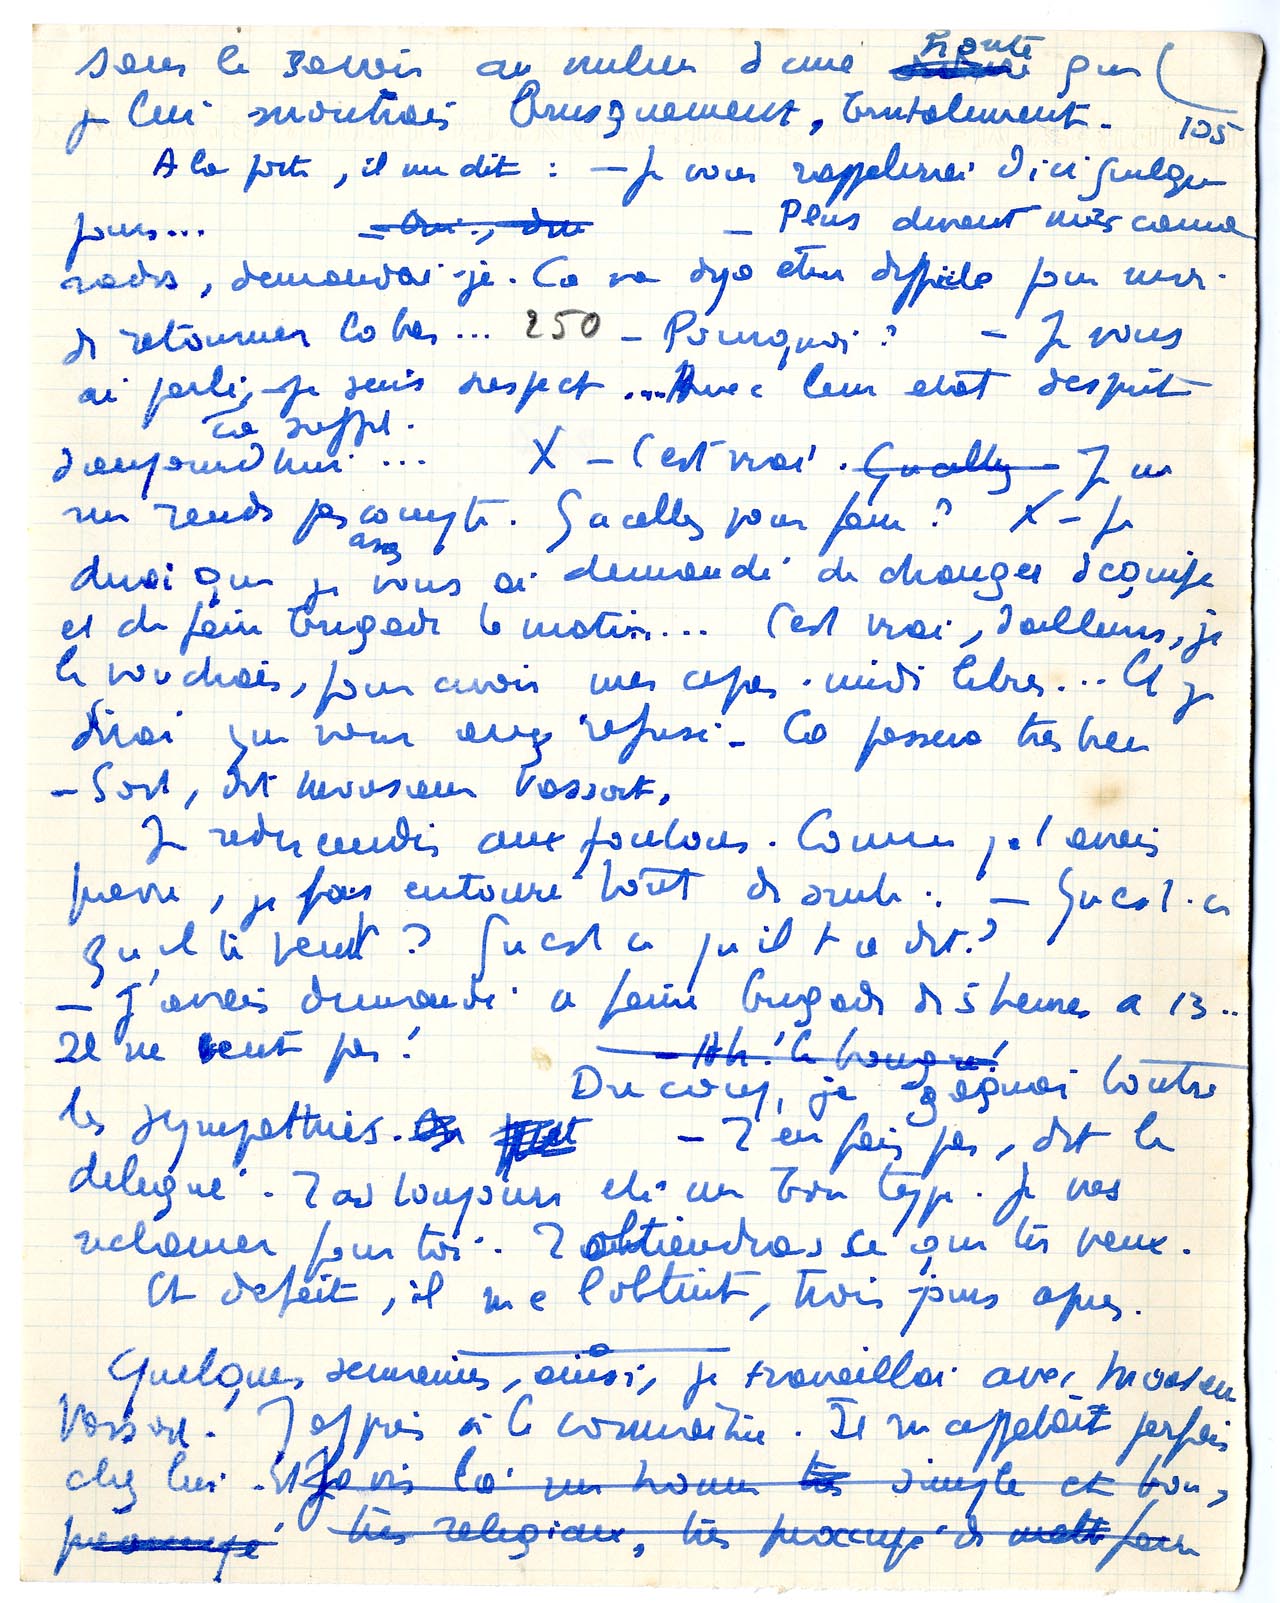 sans le savoir au milieu d'une route que
je lui montrais brusquement, brutalement. 105
A la porte, il me dit : — Je vous rappellerai d'ici quelque
jours... — Oui, — Plus devant mes cama
rades, demandai-je. Ca va deja etre difficile pour moi
de retourner la bas... 250 — Pourquoi ? — Je vous
ai parlé, je suis suspect ... Avec leur etat desprit
ca suffit.
d'aujourdhui ... X — C'est vrai. Qu'allez — Je ne
me rends pas compte. Qu'allez vous faire ? X — Je
assez
dirai que je vous ai demandé de changer d'équipe
et de faire brigade le matin... C'est vrai, d'ailleurs, je
le voudrais, pour avoir mes apres-midi libres... Et je
dirai que vous avez refusé. Ca passera tres bien
— Soit, dit monsieur Vassort.
Je redescendis aux foulons. Comme je l'avais
prevu, je fus entouré tout de suite : — Qu'est-ce
qu'il te veut ? Qu'est ce qu'il t'a dit ?
— J'avais demandé a faire brigade de 5 heures a 13..
Il ne veut pas !
— Ah ! le bougre !
Du coup, je gagnai toutes
les sympathies. — T'en fais pas, dit le
delegué. T'as toujours eté un bon type. Je vas
reclamer pour toi. T'obtiendras ce que tu veux.
Et de fait, il me l'obtint, trois jours apres.
Quelques semaines, ainsi, je travaillai avec Monsieur
Vassort. J'appris à le connaitre. Il m'appelait parfois
chez lui. Et Je vis là un homme très simple et bon,
préoccupé très religieux, très préoccupé de mett faire